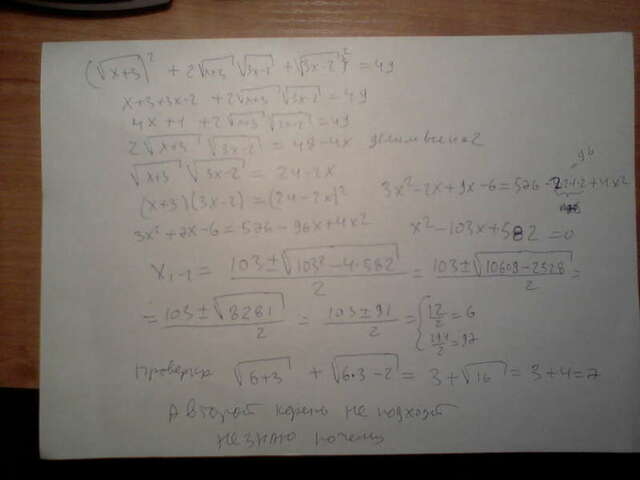 (√(x+3))² + 2√(x+3) √(3x-2) + (√(3x-2))² = 49
x+3+3x-2 + 2√(x+3) √(3x-2) = 49
4x+1 + 2√(x+3) √(3x-2) = 49
2√(x+3) √(3x-2) = 48-4x делим все на 2
√(x+3) √(3x-2) = 24-2x
96
(x+3)(3x-2) = (24-2x)²
3x²-2x+9x-6=576-2·24·2+4x²
3x²+7x-6=576-96x+4x²
x²-103x+582=0
x₁,₂ = (103±√(103²-4·582))/2 = (103±√(10609-2328))/2 =
= (103±√8281)/2 = (103±91)/2 = { 12/2=6
194/2=97
Проверка √(6+3) + √(6·3-2) = 3+√16 = 3+4=7
А второй корень не подходит
не знаю почему